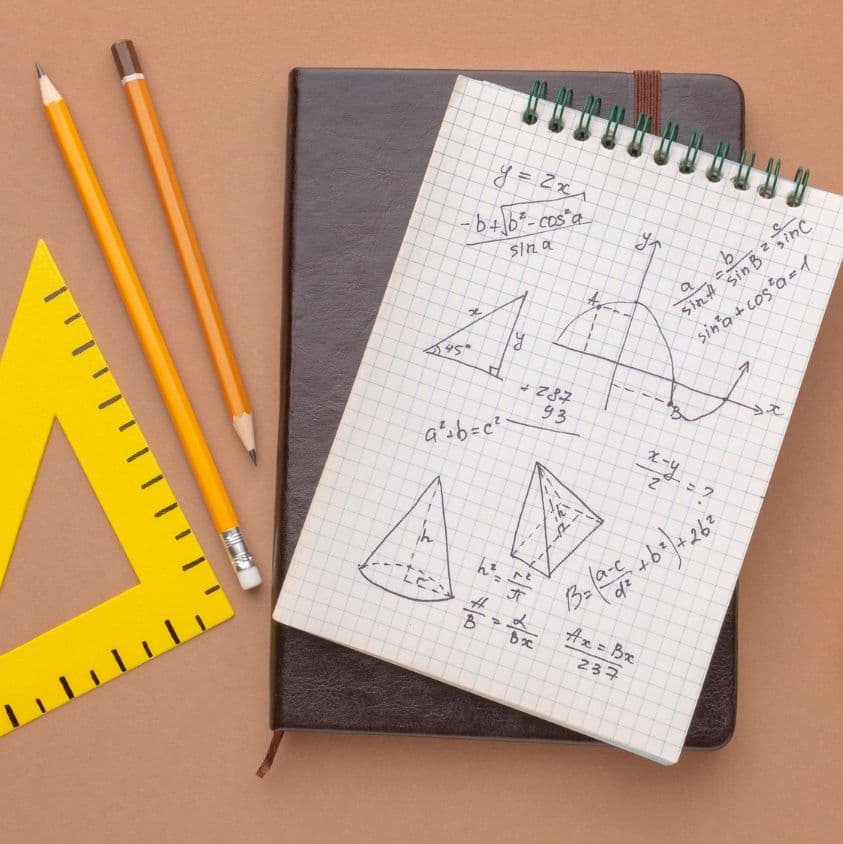 y = 2x
-b+√b²-cos²a
sin a
y
a/sinA = b/sinB = c/sinC
sin²a + cos²a = 1
A
x
45°
y
B
x
+ 287
93
a²+b=c²
x-y/2 = ?
h
h
h² = r²/π
B=(a-c/d² + b²)+2b²
A/B = α/Bx
Ax = Bx
237